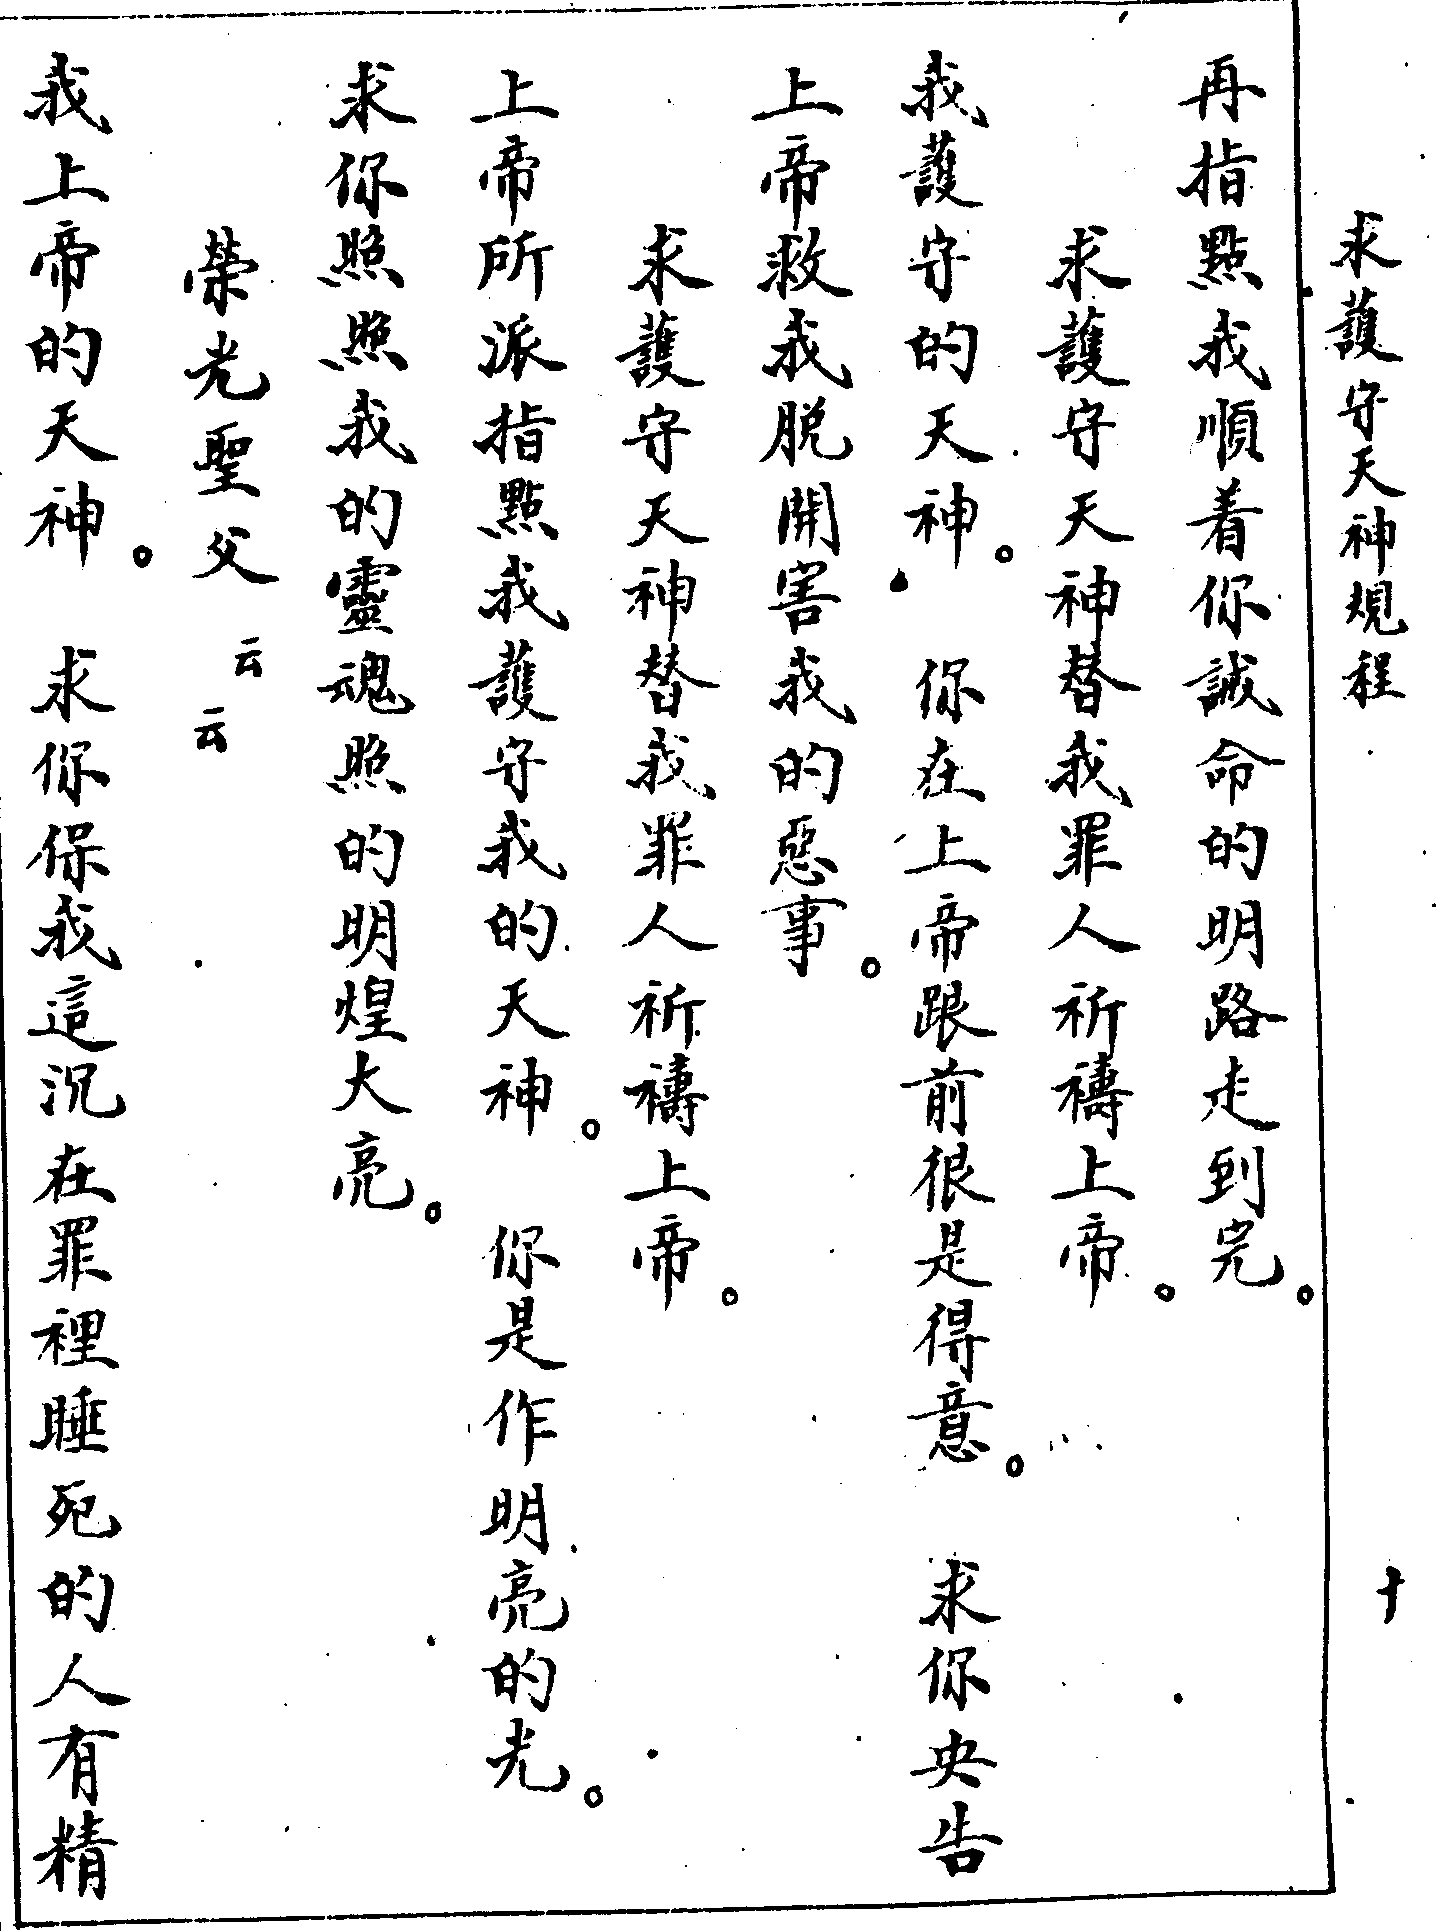 求護守天神規程 十
再指點我順着你誡命的明路走到完。
求護守天神替我罪人祈禱上帝。
我護守的天神。 你在上帝跟前很是得意。 求你央告
上帝救我脱開害我的惡事。
求護守天神替我罪人祈禱上帝。
上帝所派指點我護守我的天神。 你是作明亮的光。
求你照照我的靈魂照的明煌大亮。
榮光聖父云云
我上帝的天神。 求你保我這沉在罪裡睡死的人有精